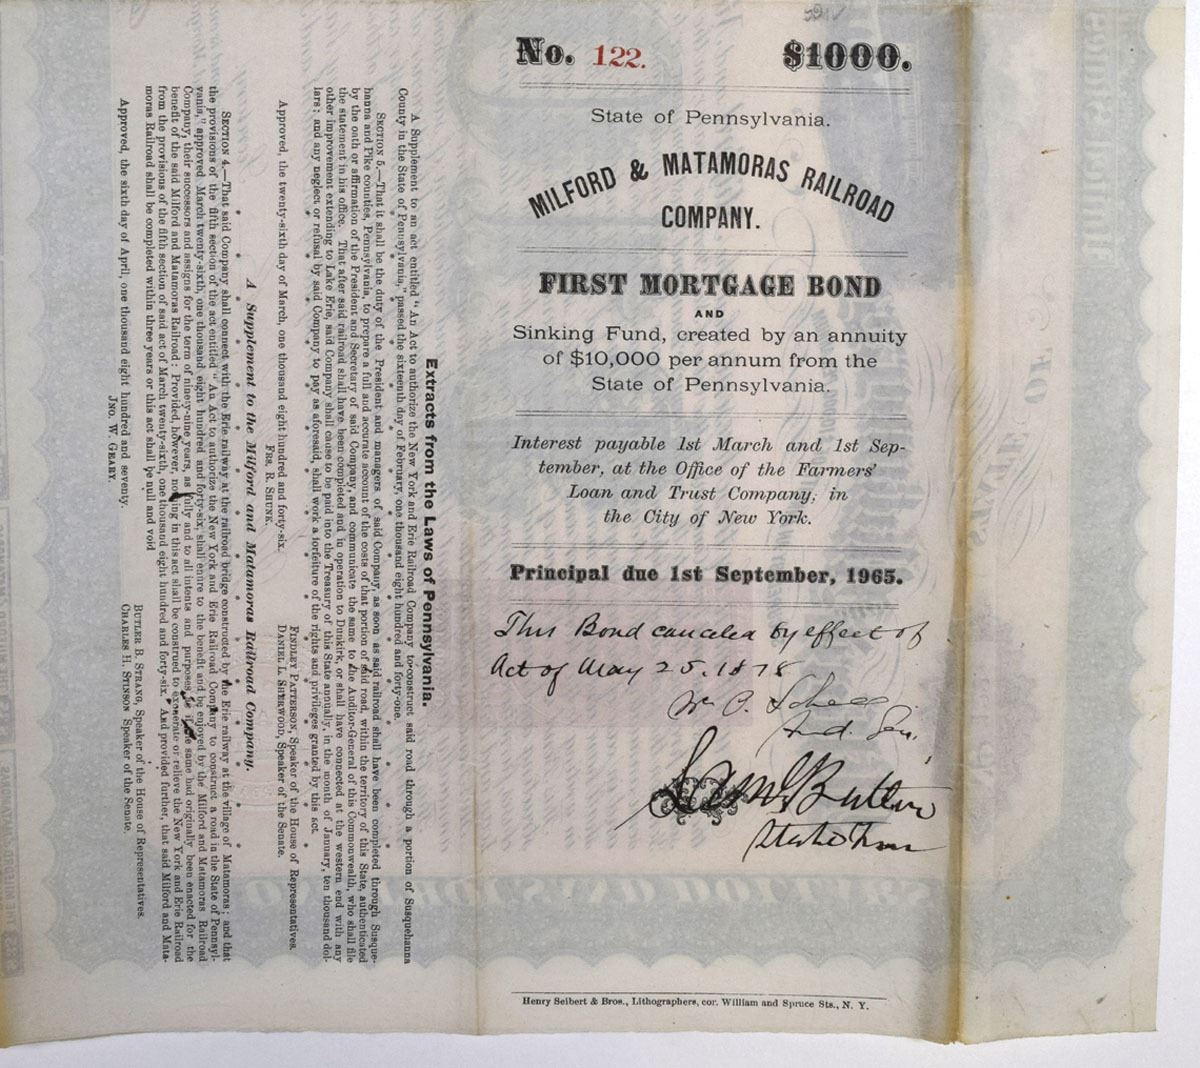 No. 122. $1000.
State of Pennsylvania.
MILFORD & MATAMORAS RAILROAD
COMPANY.
FIRST MORTGAGE BOND
AND
Sinking Fund, created by an annuity
of $10,000 per annum from the
State of Pennsylvania.
Interest payable 1st March and 1st Sep-
tember, at the Office of the Farmers'
Loan and Trust Company, in
the City of New York.
Principal due 1st September, 1965.
This Bond canceled by effect of
Act of May 25. 1878
Wm P. Schell
Aud. Gen.
Henry Seibert & Bros., Lithographers, cor. William and Spruce Sts., N. Y.
Extracts from the Laws of Pennsylvania.
A Supplement to an act entitled "An Act to authorize the New York and Erie Railroad Company to construct said road through a portion of Susquehanna
County in the State of Pennsylvania," passed the sixteenth day of February, one thousand eight hundred and forty-one.
SECTION 5.—That it shall be the duty of the President and managers of said Company, as soon as said railroad shall have been completed through Susque-
hanna and Pike counties, Pennsylvania, to prepare a full and accurate account of the costs of that portion of said road, within the territory of this State, authenticated
by the oath or affirmation of the President and Secretary of said Company, and communicate the same to the Auditor-General of this Commonwealth, who shall file
the statement in his office. That after said railroad shall have been completed and in operation to Dunkirk, or shall have connected at the western end with any
other improvement extending to Lake Erie, said Company shall cause to be paid into the Treasury of this State annually, in the month of January, ten thousand dol-
lars; and any neglect or refusal by said Company to pay as aforesaid, shall work a forfeiture of the rights and privileges granted by this act.
FINDLEY PATTERSON, Speaker of the House of Representatives.
DANIEL L. SHERWOOD, Speaker of the Senate.
Approved, the twenty-sixth day of March, one thousand eight hundred and forty-six.
FRS. R. SHUNK.
A Supplement to the Milford and Matamoras Railroad Company.
SECTION 4.—That said Company shall connect with the Erie railway at the railroad bridge constructed by the Erie railway at the village of Matamoras; and that
the provisions of the fifth section of the act entitled "An Act to authorize the New York and Erie Railroad Company to construct a road in the State of Pennsyl-
vania," approved March twenty-sixth, one thousand eight hundred and forty-six, shall enure to the benefit and be enjoyed by the Milford and Matamoras Railroad
Company, their successors and assigns for the term of ninety-nine years, as fully and to all intents and purposes, as if the same had originally been enacted for the
benefit of the said Milford and Matamoras Railroad: Provided, however, nothing in this act shall be construed to exonerate or relieve the New York and Erie Railroad
from the provisions of the fifth section of said act of March twenty-sixth, one thousand eight hundred and forty-six. And provided further, that said Milford and Mata-
moras Railroad shall be completed within three years or this act shall be null and void
BUTLER B. STRANG, Speaker of the House of Representatives.
CHARLES H. STINSON Speaker of the Senate.
Approved, the sixth day of April, one thousand eight hundred and seventy.
JNO. W. GEARY.